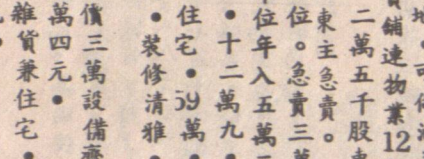 地・可
貨鋪連物業12
二萬五千股東
東主急賣。
位。急賣三萬
位年入五萬二
・十二萬九
住宅・59萬
・裝修清雅・
價三萬設備齊
萬四元・
雜貨兼住宅・